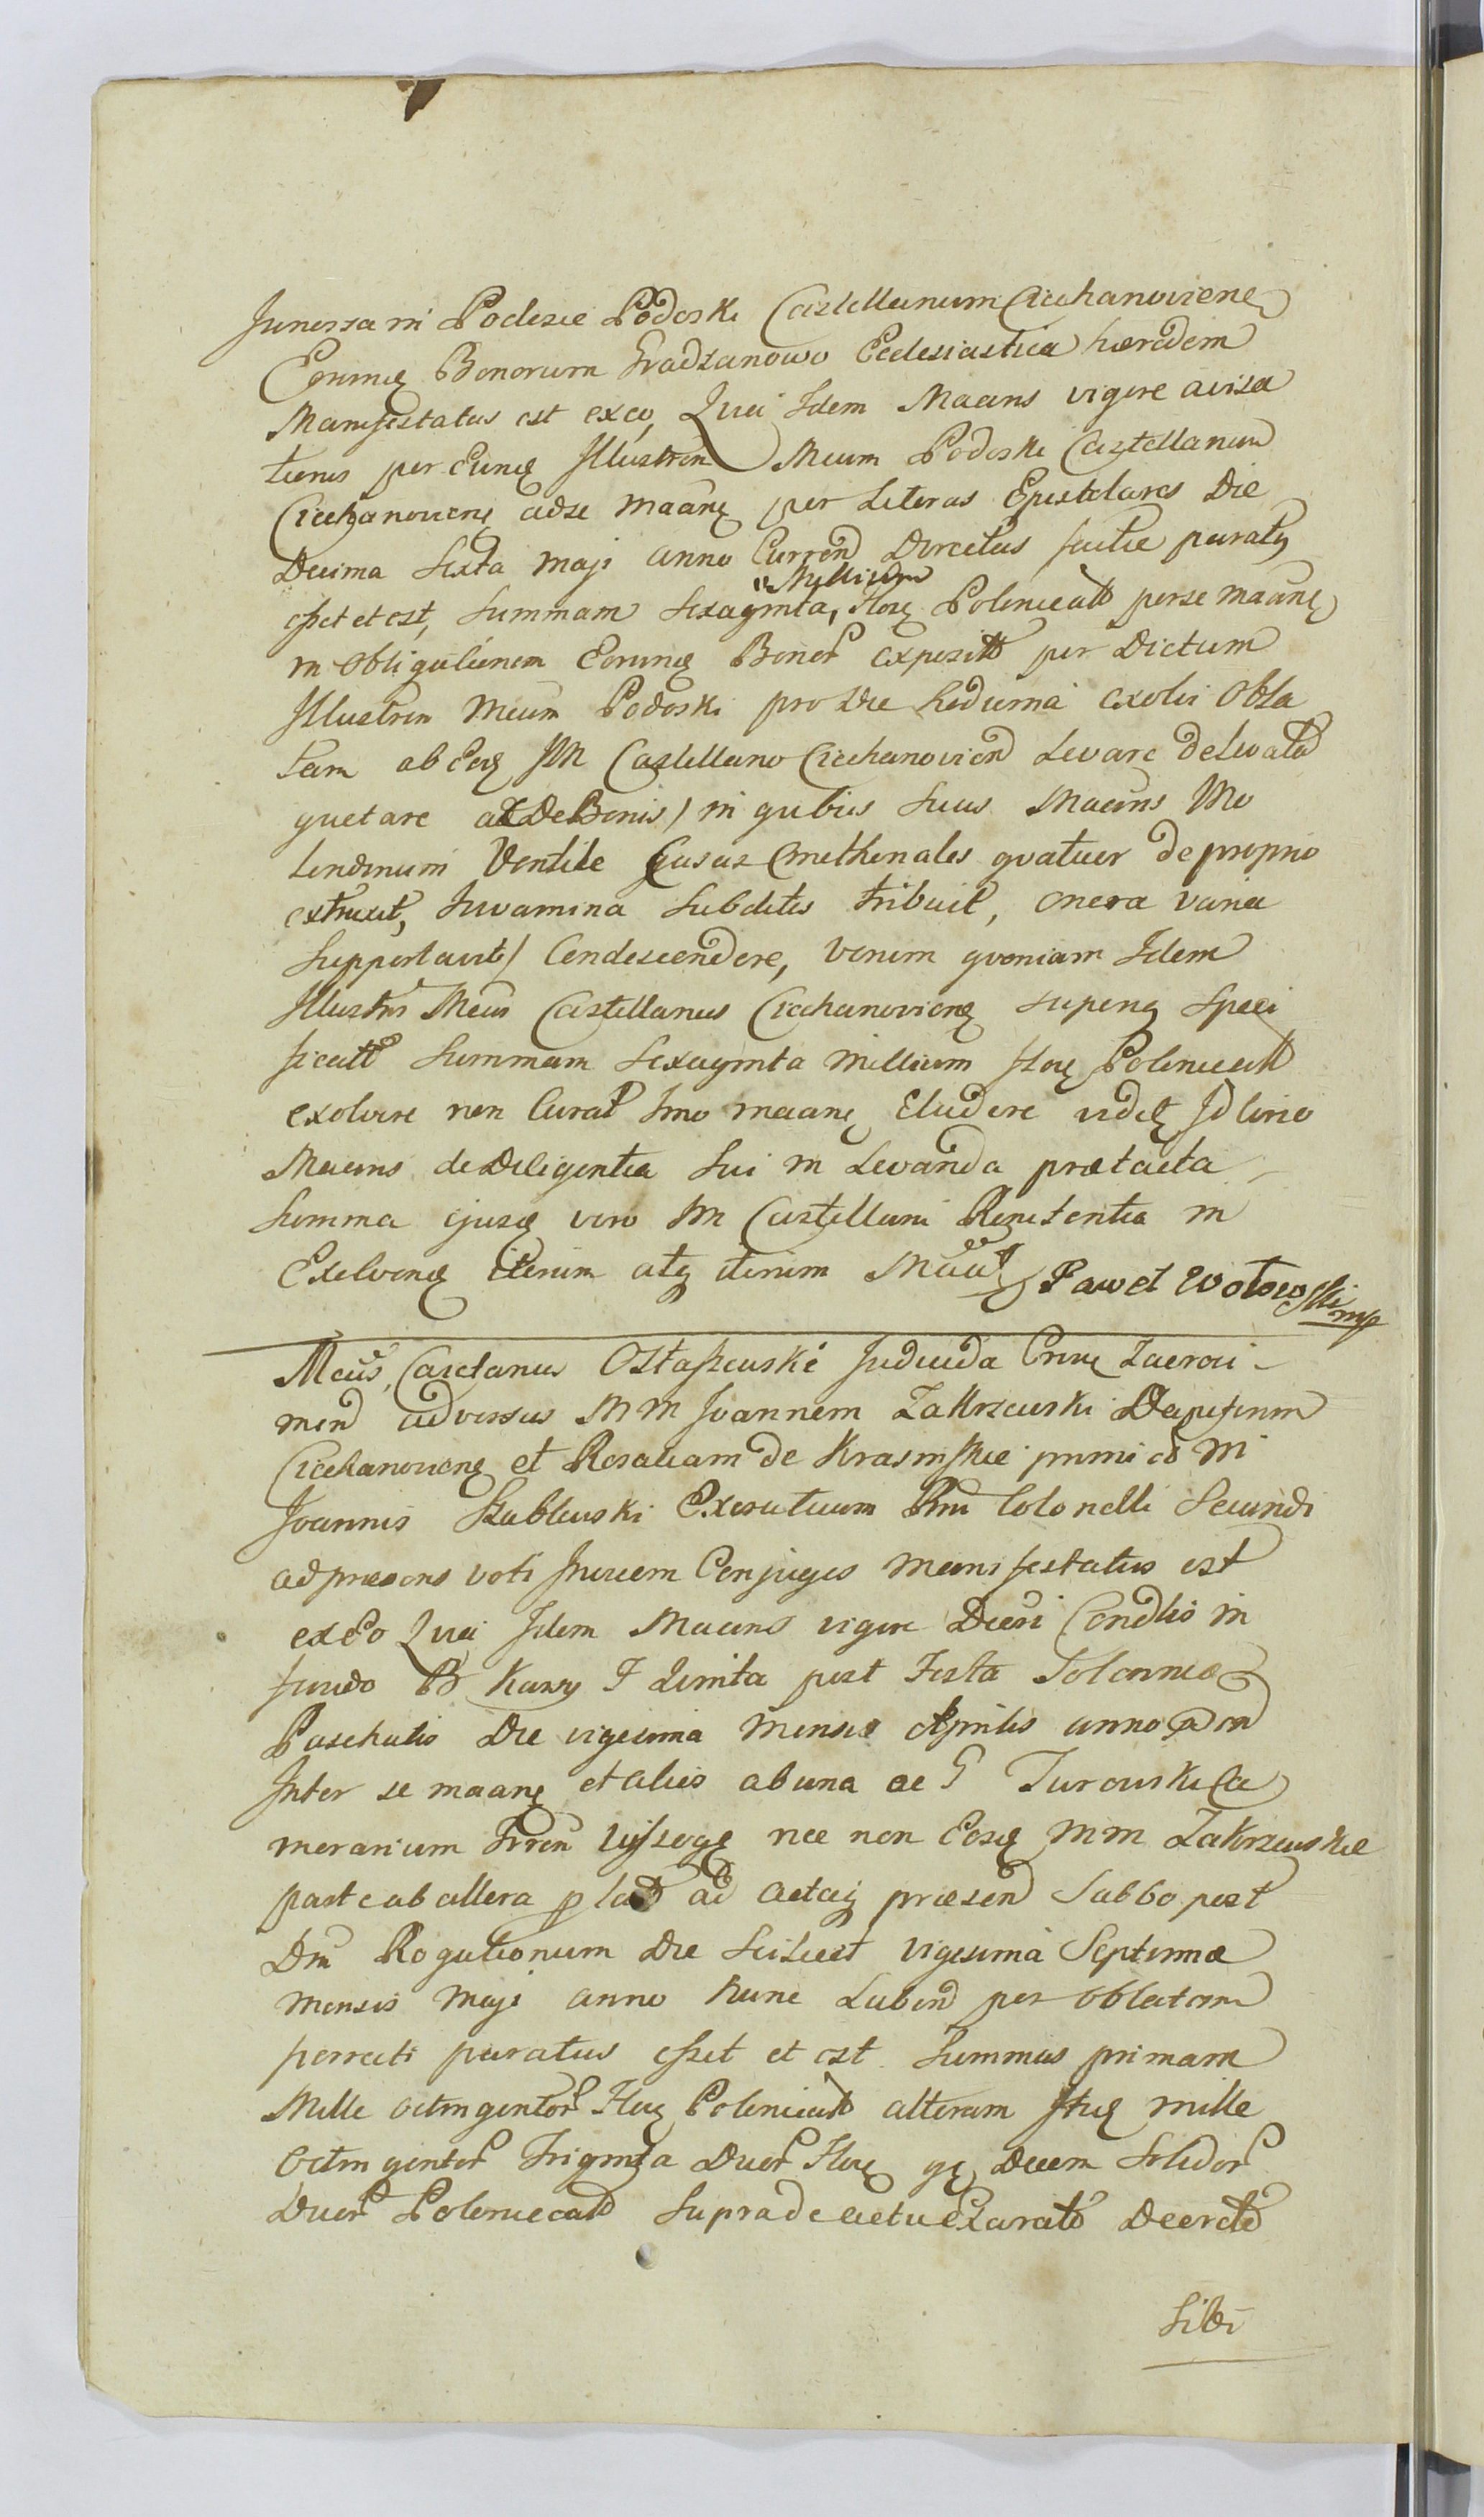 Junossa in Podosie Podoski Castellanum Ciechanoviene
Eorunq Bonorum Gradzanowo Ecclesiastica hæredem
Manifestatus est ex eo, Quia Idem Maans vigore aviza
tionis per Eunq Illustrem Mcum Podoski Castellanum
Ciechanovienq ad se maanq per Literas Epistolares Die
Decima Sexta Maji anno Curren Directas factæ paratq
esset et est, Summam Sexaginta, Millium Florq Polonicall per se maanq
in obligationem Eorunq Bonor exposit per Dictum
Illustrem Mcum Podoski pro Die hodierna exolvi obla
tam ab Eoq IM Castellano Ciechanovien Levare de Levata
quetare ac De Bonis / in qvibus suus Maans Mo
lendinum Ventile Casas Cmethonales qvatuor de proprio
extruxit, Juvamina Subditis tribuit, onera varia
Supportavit / Condescendere, verum qvoniam Idem
Illustris Mcus Castellanus Ciechanovienq superiq speci
ficatt Summam Sexaginta Millium Florq Polonicall
exolvere non Curat Imo maanq Eludere videtq Id circo
Maans de Diligentia sui in Levanda prætacta
Summa ejusq vero IM Castellani Renitentia in
Exolvenq iterum atq iterum Maat Paweł Wołowski mp
Mcus, Caietanus Ostaszewski Judicida Crinq Zacroci-
men adversus MM Joannem Zakrzewski Dapiferum
Ciechanovienq et Rosaliam de Krasinskie primi eo M
Joannis Szablewski Exercituum Rni Colonelli Secundi
ad præsens voti Invicem Conjuges Manifestatus est
ex Eo Quia Idem Maans vigore Decri Condlis in
fundo B Karwy F Zimita post Festa Solennia
Paschalis Die vigesima Mensis Aprilis anno pnn
Inter se maanq et alios ab una ac G Turowski Ca
merarium Trren Wyszogq nec non Eosq MM Zakrzewskie
parte ab altera p lat ad actaq præsen Sabbo post
Dm Rogationum Die Scilicet vigesima Septima
Mensis Maji anno hunc Labend per oblatam
porrecti paratus esset et est Summas primam
Mille octingentor Florq Polonicall alteram Itiq mille
Octingentor Triginta Duor Florq gq Decem Solidor
Duor Polonicall Supra de actu Exarato Decreto
Sibi